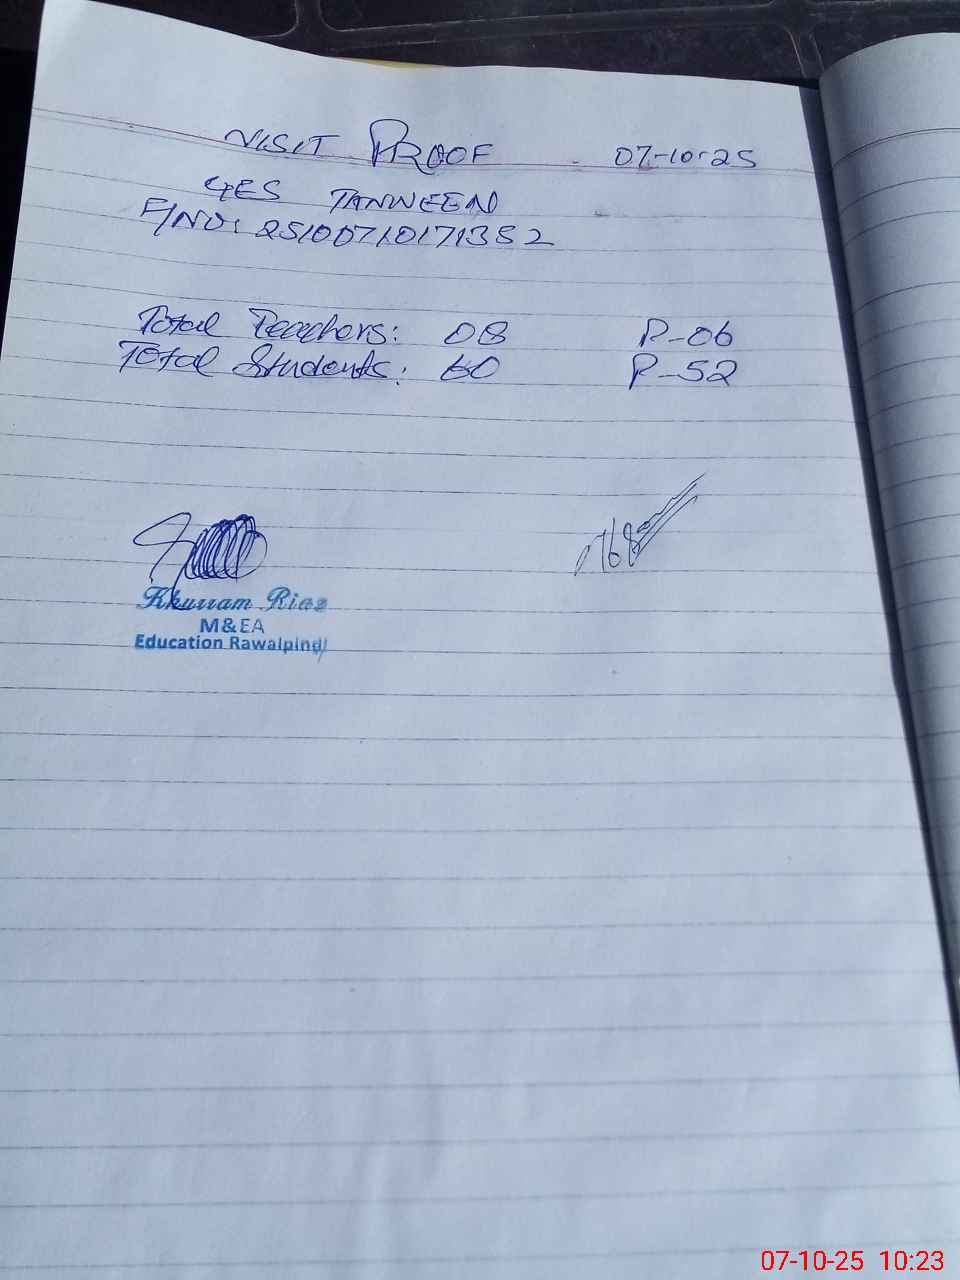 VISIT PROOF 07-10-25
GES TANWEEN
F/NO: 25100710171352
Total Teachers: 08 P-06
Total Students: 60 P-52
Khurram Riaz
M&EA
Education Rawalpindi
07-10-25 10:23